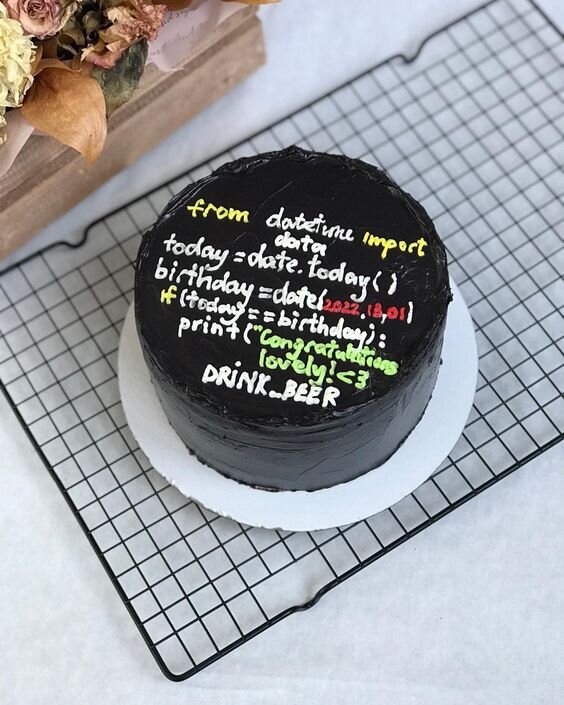 from datetime import
data
today=date.today()
birthday=date(2022.13,01)
if(today==birthday):
print("Congratulations
lovely!<3
DRINK_BEER